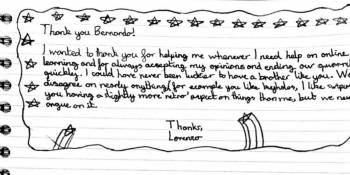 Thank you Bernardo!
I wanted to thank you for helping me whenever I need help on online
learning and for always accepting my opinions and ending our quarrels
quickly. I could have never been luckier to have a brother like you. We
disagree on nearly anything (for example you like I like
you having a slightly more 'retro' aspect on things than me, but we never
argue on it.
Thanks,
Lorenzo